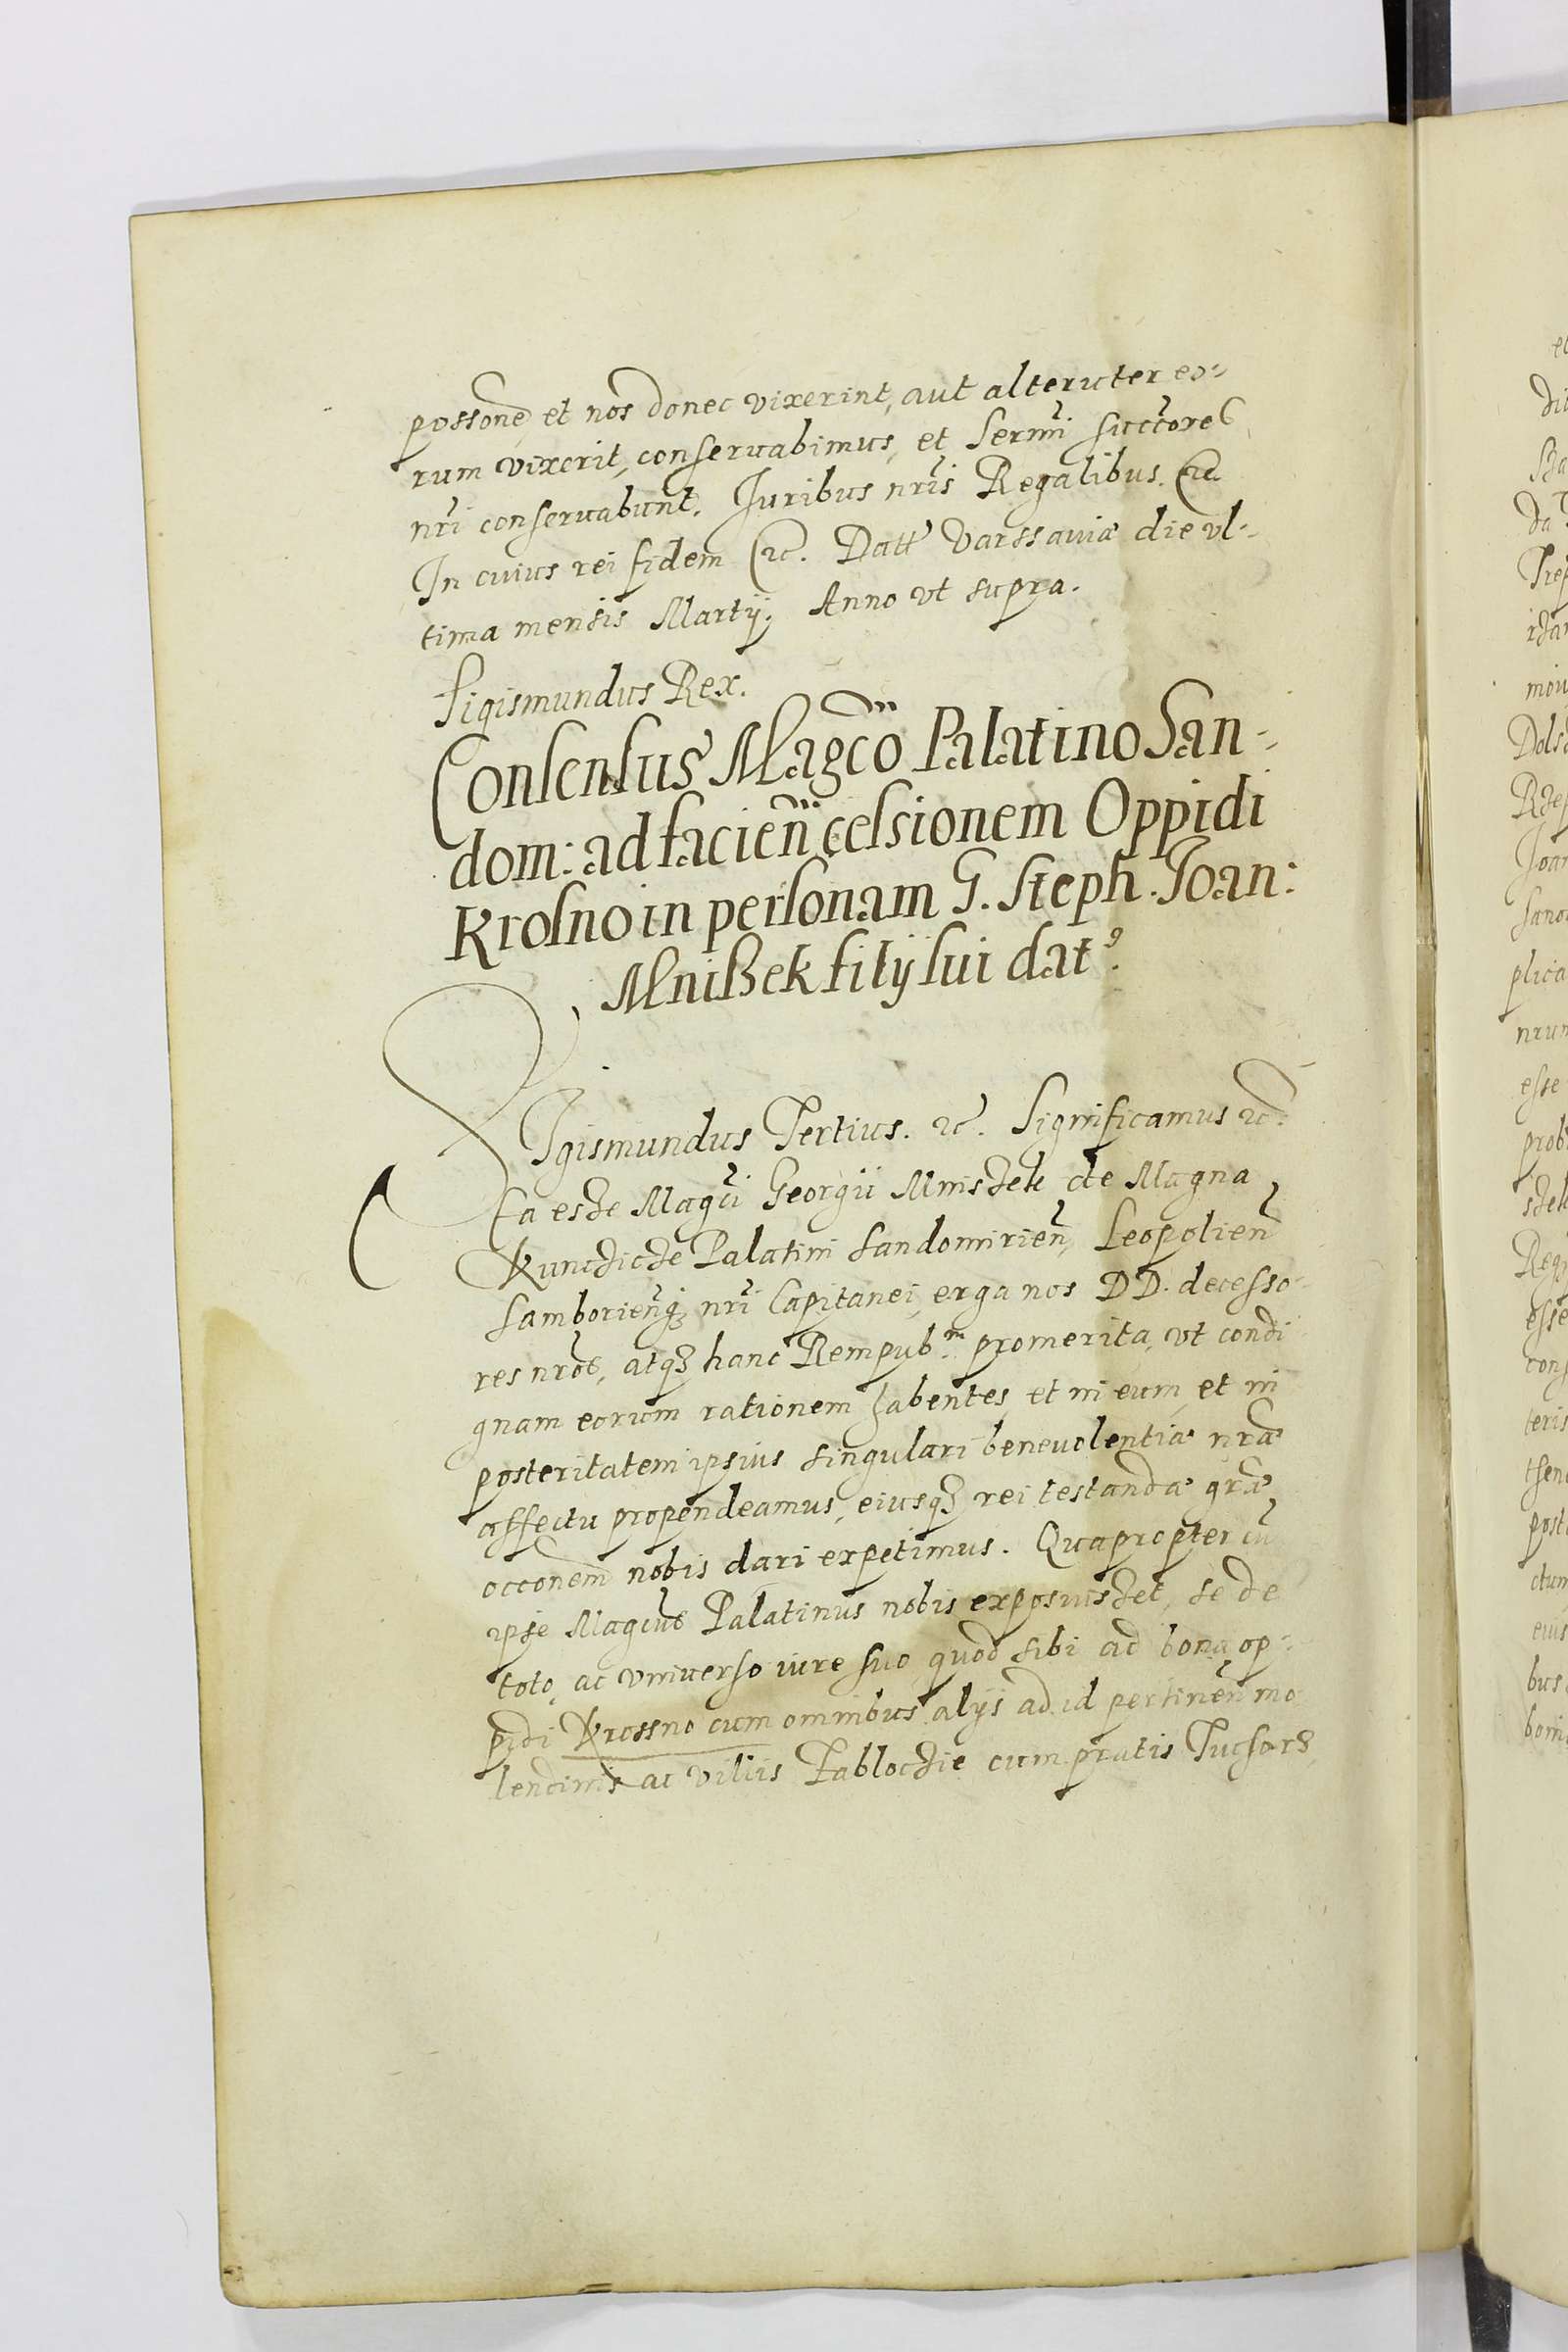 possone et nos donec vixerint, aut alteruter eo-
rum vixerit, conservabimus, et Sermi succtores
nri conservabunt. Iuribus nris Regalibus etc.
In cuius rei fidem etc. Datt Varssaviæ die vl-
tima mensis Martij. Anno vt supra.
Sigismundus Rex.
Consensus Magco Palatino San-
dom: ad facien cessionem Oppidi
Krosno in personam G. Steph. Ioan:
Mnißek filij sui dat9.
SIgismundus Tertius. etc. Significamus etc.
Ea esze Magci Georgii Mniszek de Magna
Kunczicze Palatini Sandomirien, Leopolien
Samborienq3 nri Capitanei, erga nos DD. decesso-
res nros, atq3 hanc Rempub.m promerita, vt condi
gnam eorum rationem habentes et in eum et in
posteritatem ipsius singulari benevolentiæ nræ
affectu propendeamus, eiusq3 rei testandæ græ
occonem nobis dari expetimus. Quapropter cu
ipse Magcus Palatinus nobis exposuiszet, se de
toto, ac vniverso iure suo quod sibi ad bona op-
pidi Krossno cum omnibus alijs ad id pertinen mo
lendinis ac villis cum pratis